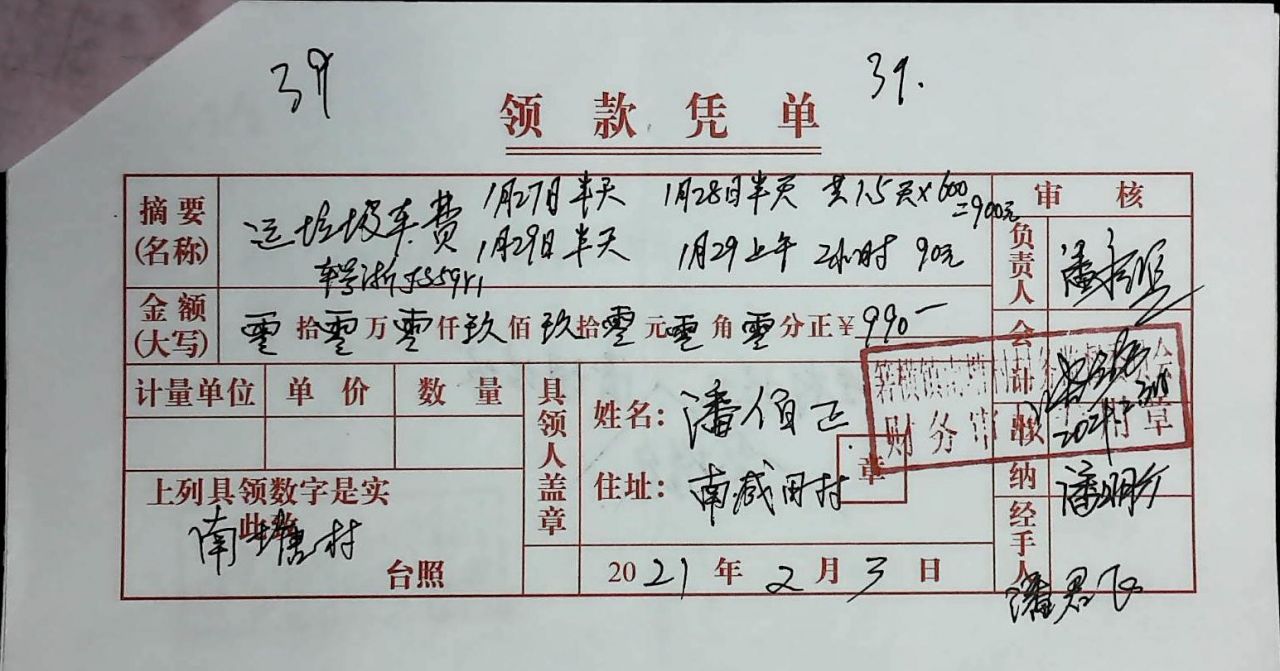 39 39.
领款凭单
摘要 (名称) 运垃圾车费 1月27日半天 1月28日半天 共1.5天×600=900元
1月29日半天 1月29上午 2小时 90元
车号浙J
审核
负责人 潘
金额 (大写) 零拾零万零仟玖佰玖拾零元零角零分正¥990-
会计
计量单位 单价 数量
具领人盖章
姓名: 潘伯正
住址: 南咸田村
章
财务审 章
2021.2.3
出纳 潘明
上列具领数字是实
此致
南塘村
台照
2021年2月3日
经手人 潘君飞